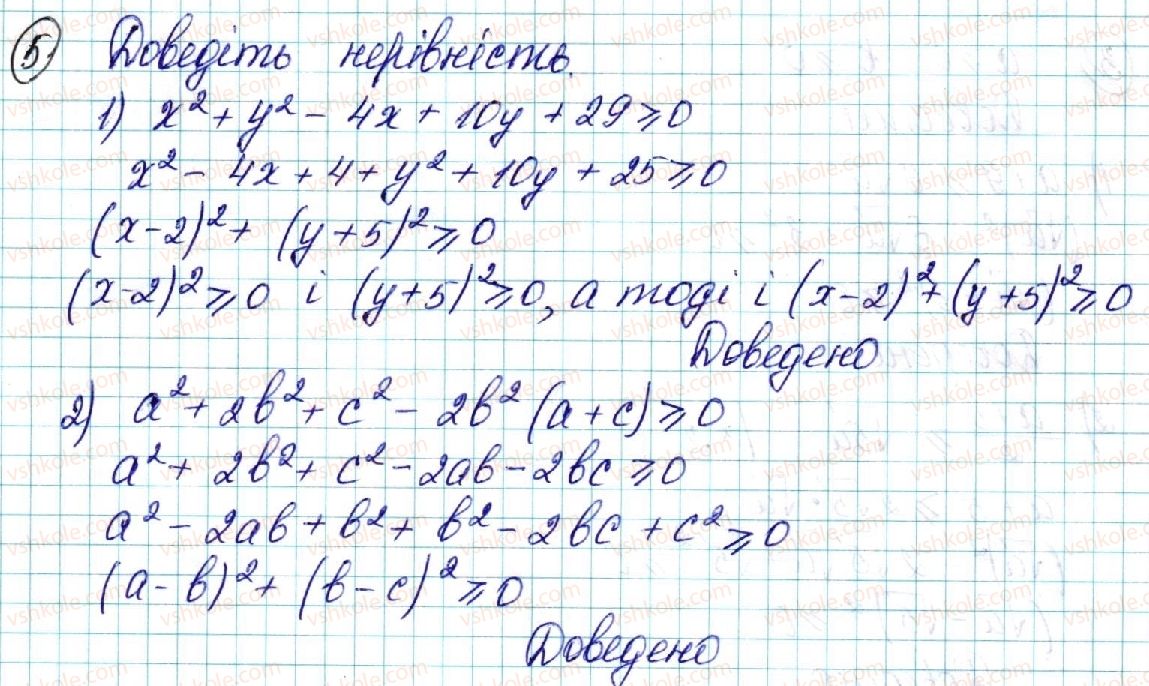 5 Доведіть нерівність.
1) x² + y² - 4x + 10y + 29 ⩾ 0
x² - 4x + 4 + y² + 10y + 25 ⩾ 0
(x-2)² + (y+5)² ⩾ 0
(x-2)² ⩾ 0 і (y+5)² ⩾ 0, а тоді і (x-2)² + (y+5)² ⩾ 0
Доведено
2) a² + 2b² + c² - 2b² (a+c) ⩾ 0
a² + 2b² + c² - 2ab - 2bc ⩾ 0
a² - 2ab + b² + b² - 2bc + c² ⩾ 0
(a-b)² + (b-c)² ⩾ 0
Доведено